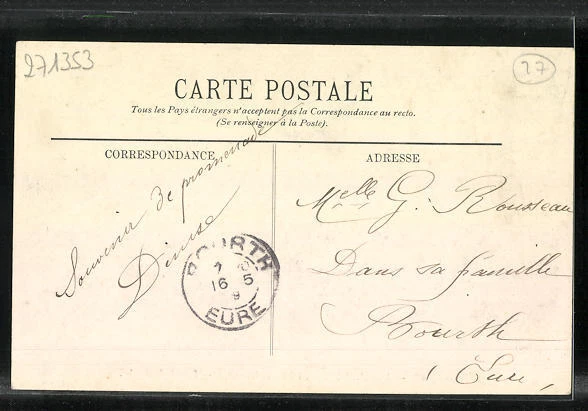 271353
27
CARTE POSTALE
Tous les Pays étrangers n'acceptent pas la Correspondance au recto.
(Se renseigner à la Poste).
CORRESPONDANCE
Souvenir de promenade
Denise
BOURTH
16 5
9
EURE
ADRESSE
Melle G. Rousseau
Dans sa famille
Bourth
(Eure)